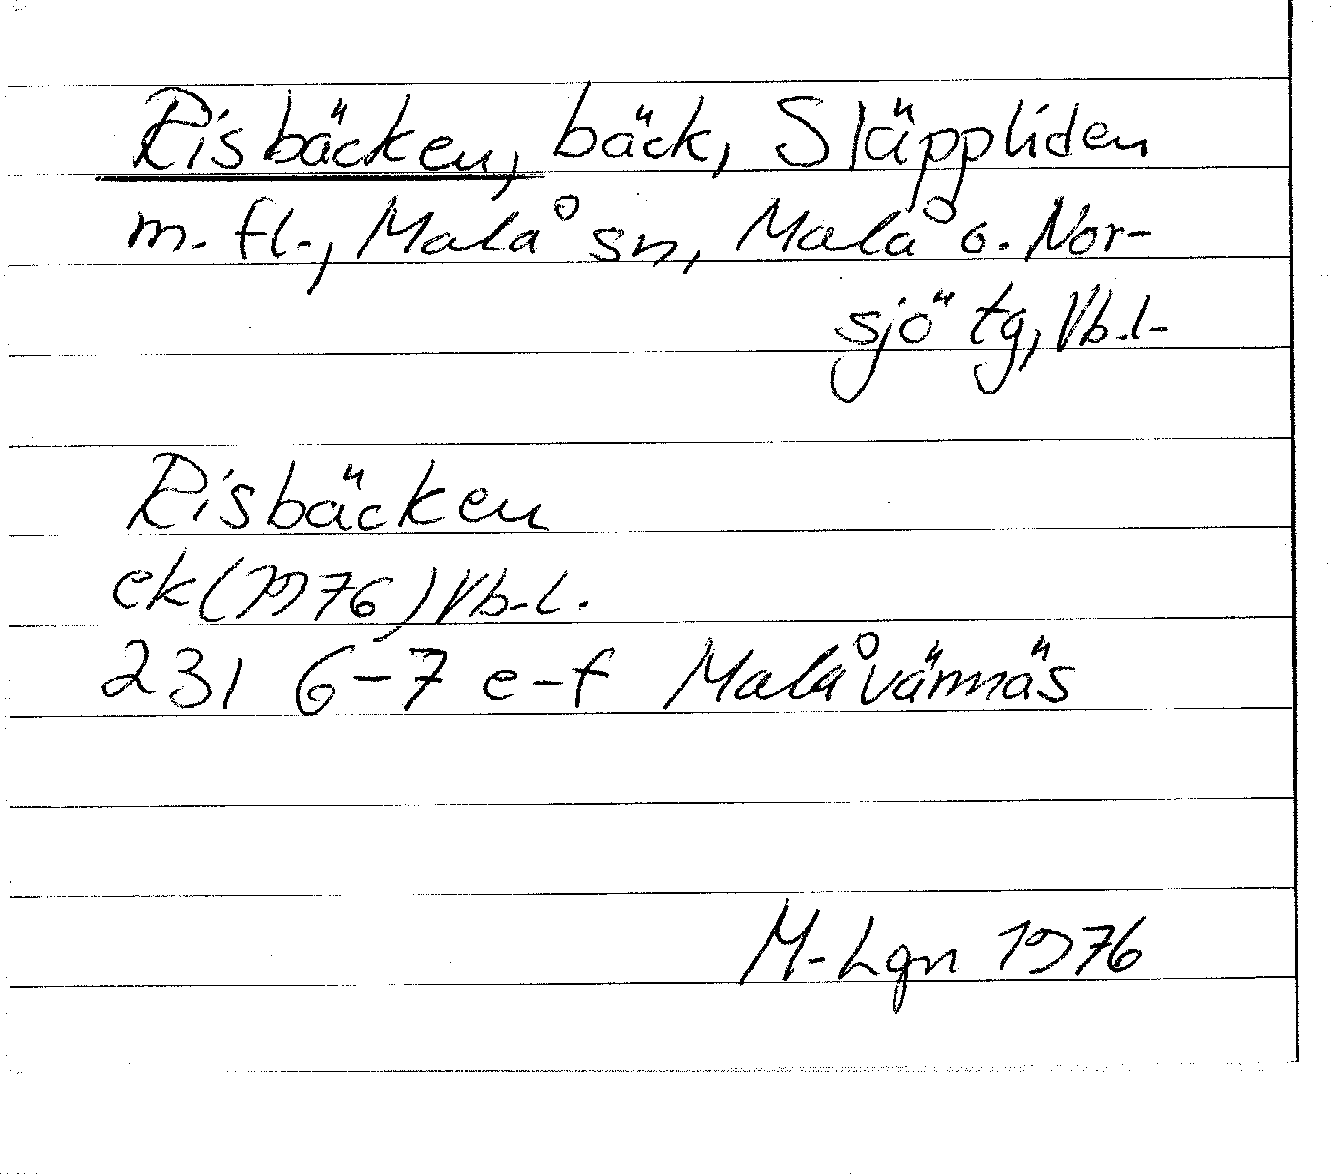 Risbäcken, bäck, Släppliden
m. fl., Malå sn, Malå o. Nor-
sjö tg, Vb.l.
Risbäcken
ek (1976) Vb.l.
231 6-7 e-f Malåvännäs
M-Lgn 1976